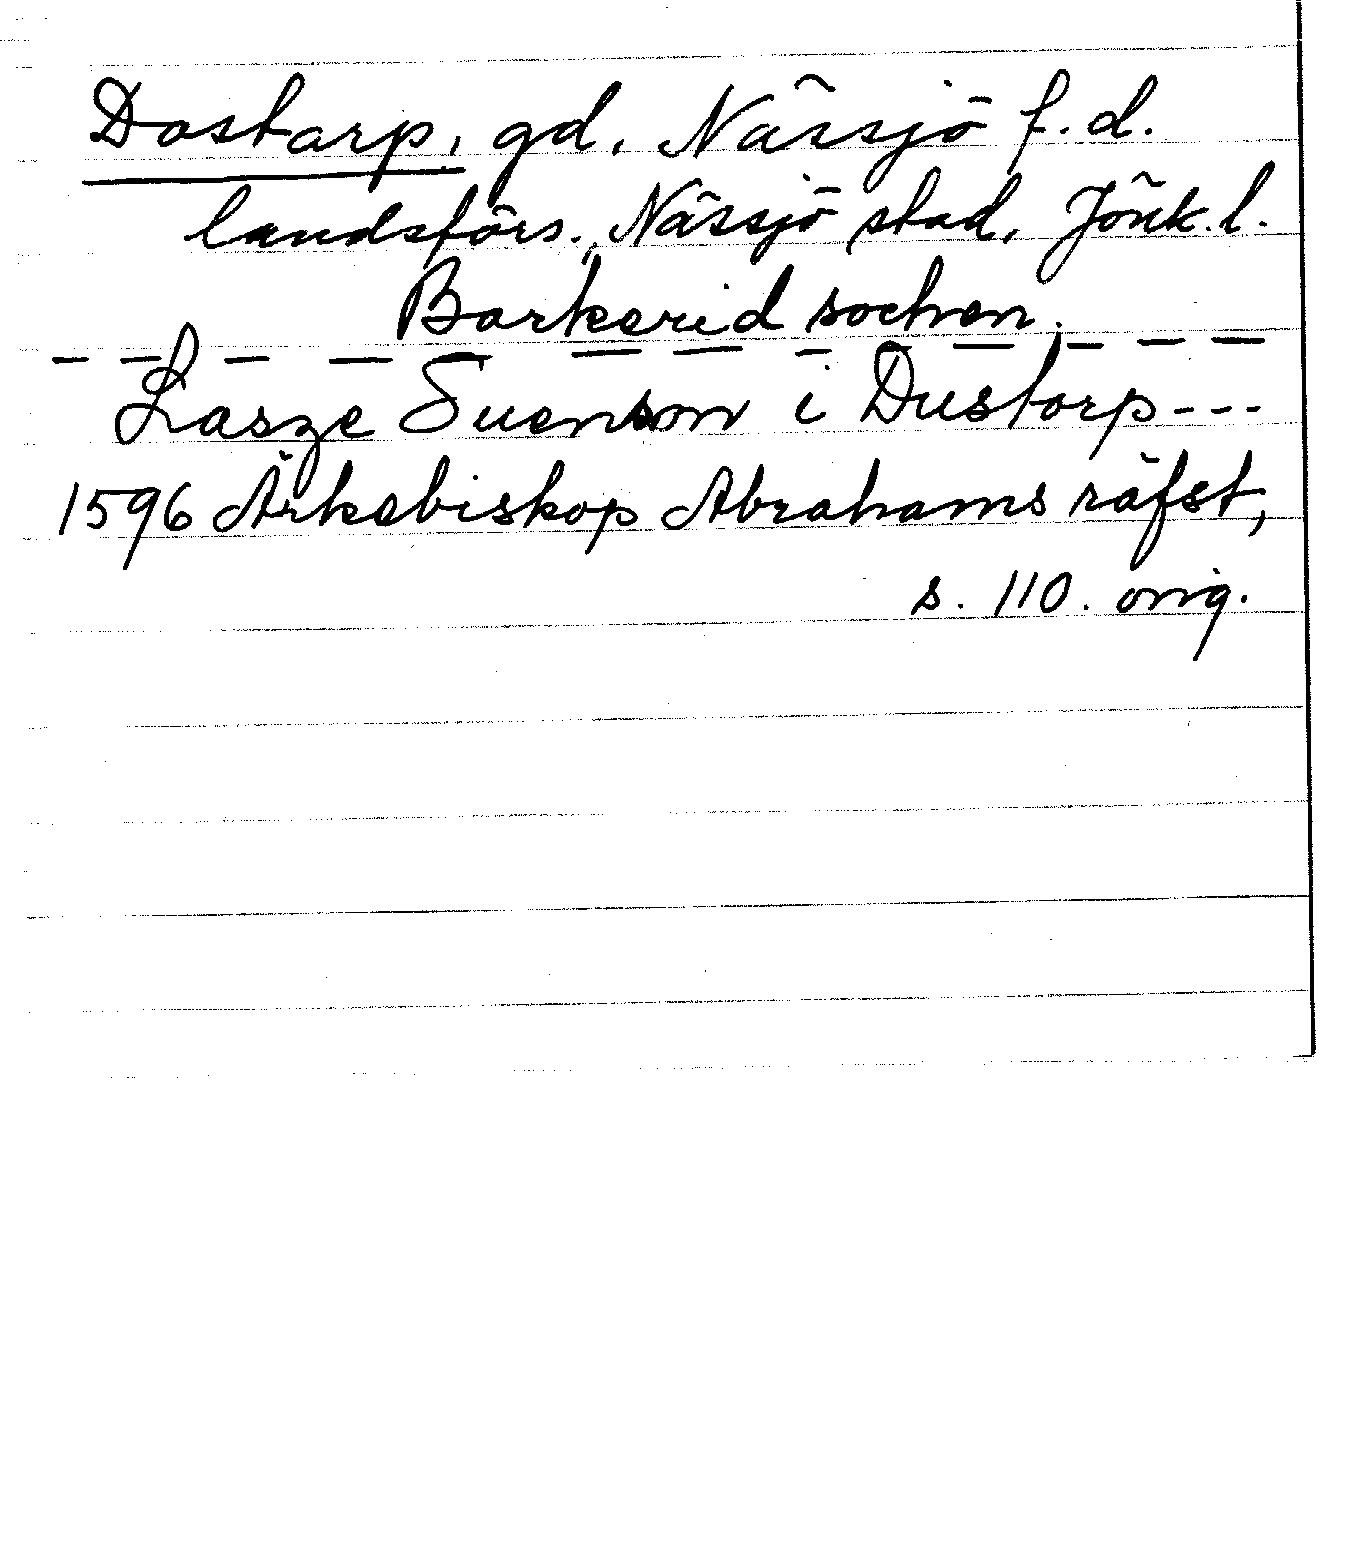 Dostarp, gd, Nässjö f.d.
landsförs., Nässjö stad, Jönk.l.
Barkerid sochen.
Lasze Suenson i Dustorp---
1596 Ärkebiskop Abrahams räfst,
s. 110. orig.